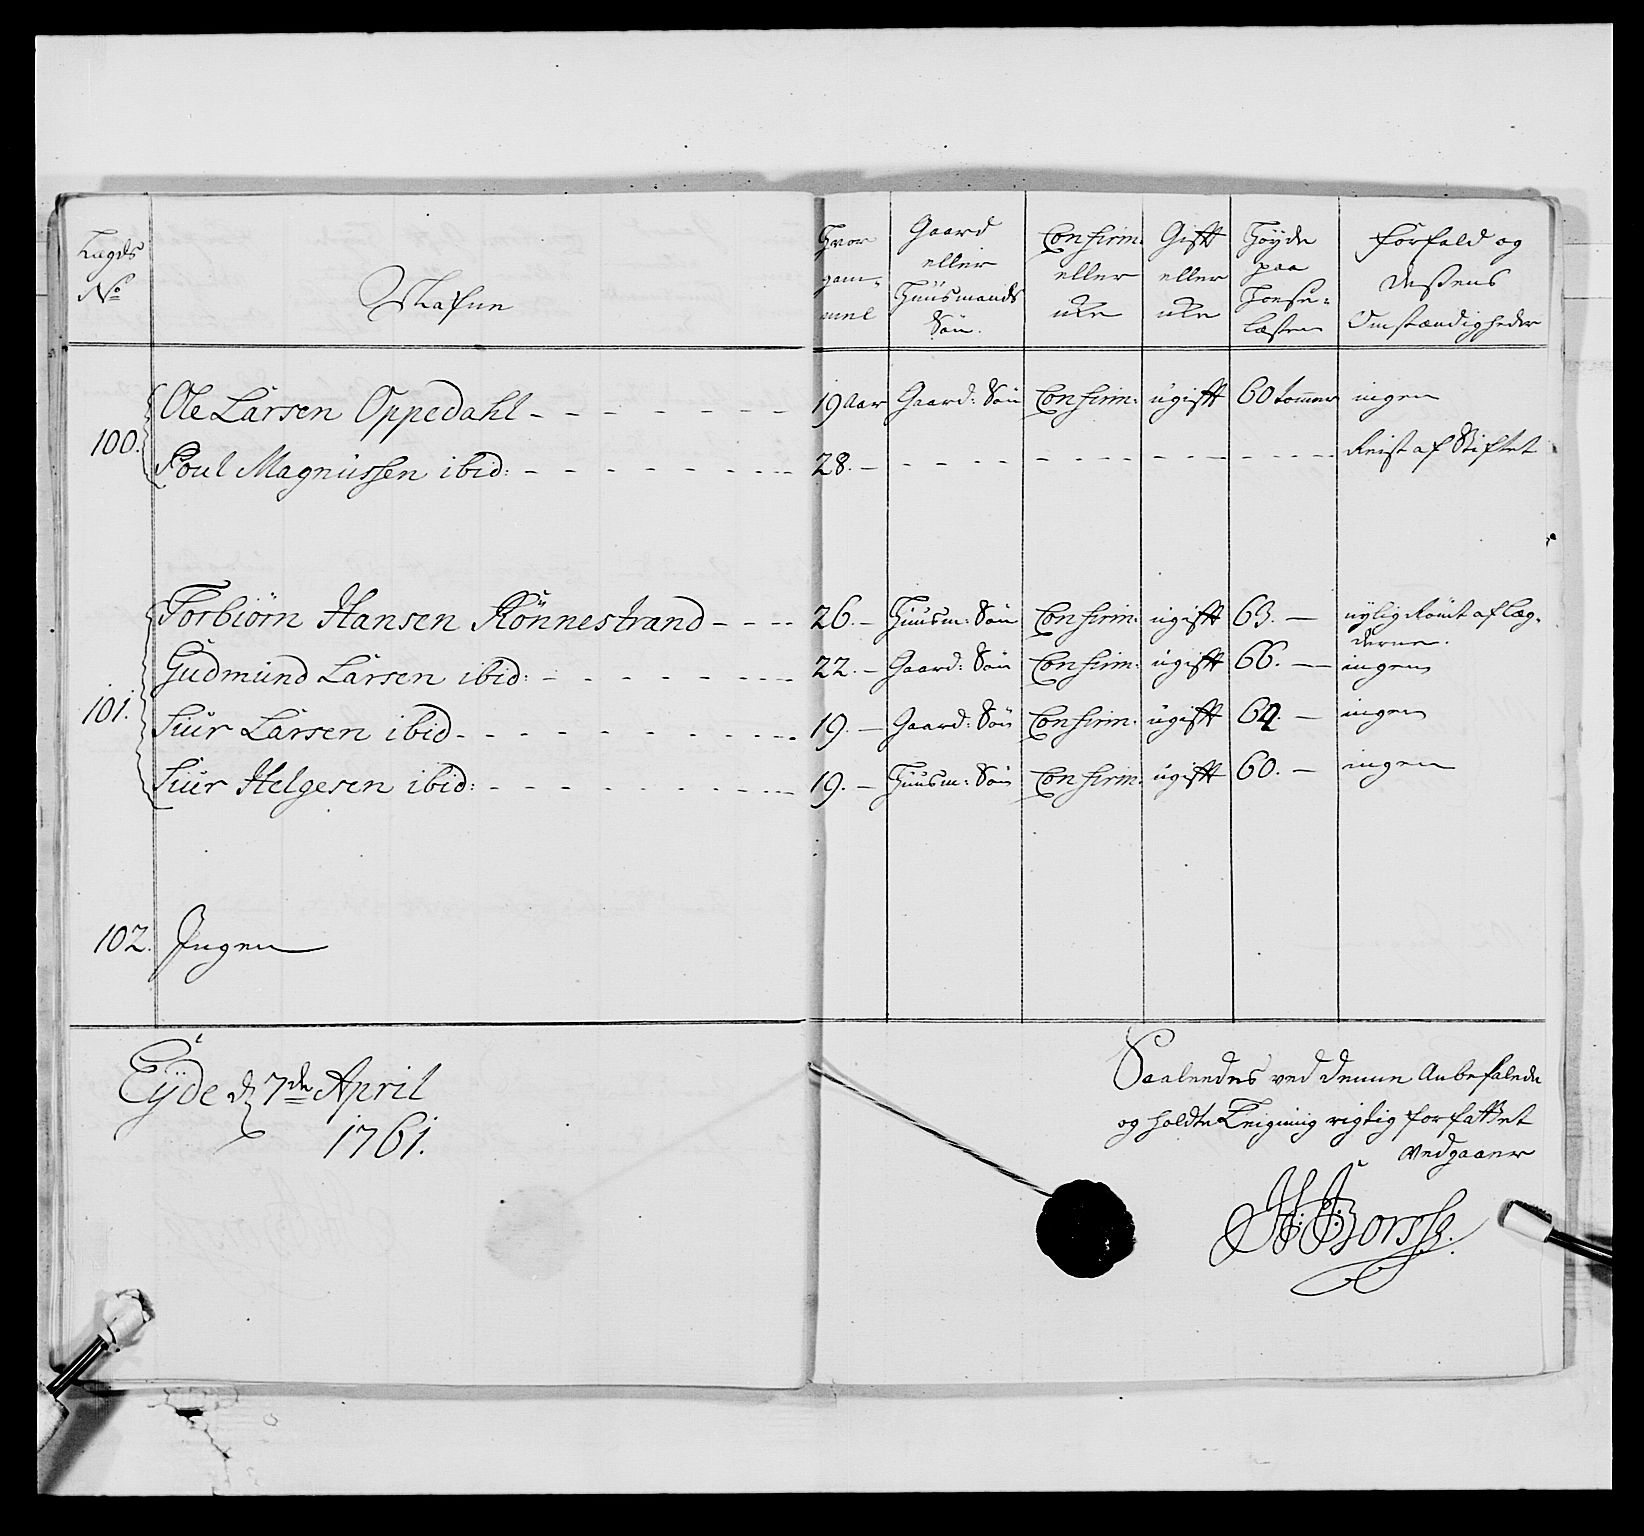 Lægds No Nafne Hvor gam- mel Gaard eller Huusmands Søn. Confirm: eller icke Gift eller icke Høyde paa Hose- læsten Forfald og dessens Omstændigheder
100. Ole Larsen Oppedahl - 19 Aar Gaard: Søn Confirm: ugifft 60 tommer ingen
Poul Magnussen ibid: - 28. - Reist af Stiftet
101. Torbiørn Hansen Rönnestrand - 26. - Huusm: Søn Confirm: ugifft 63. - nylig Römt af Læg-
derne.
Gudmund Larsen ibid: - 22. - Gaard: Søn Confirm: ugifft 66. - ingen
Siur Larsen ibid - 19. - Gaard: Søn Confirm: ugifft 62. - ingen
Siur Helgesen ibid: - 19. - Huusm: Søn Confirm: ugifft 60. - ingen
102. Ingen
Eÿde d 7de April
1761.
Saaleedes ved denne Anbefalede
og holdte Leigning rigtig forfattet
Vedgaaer